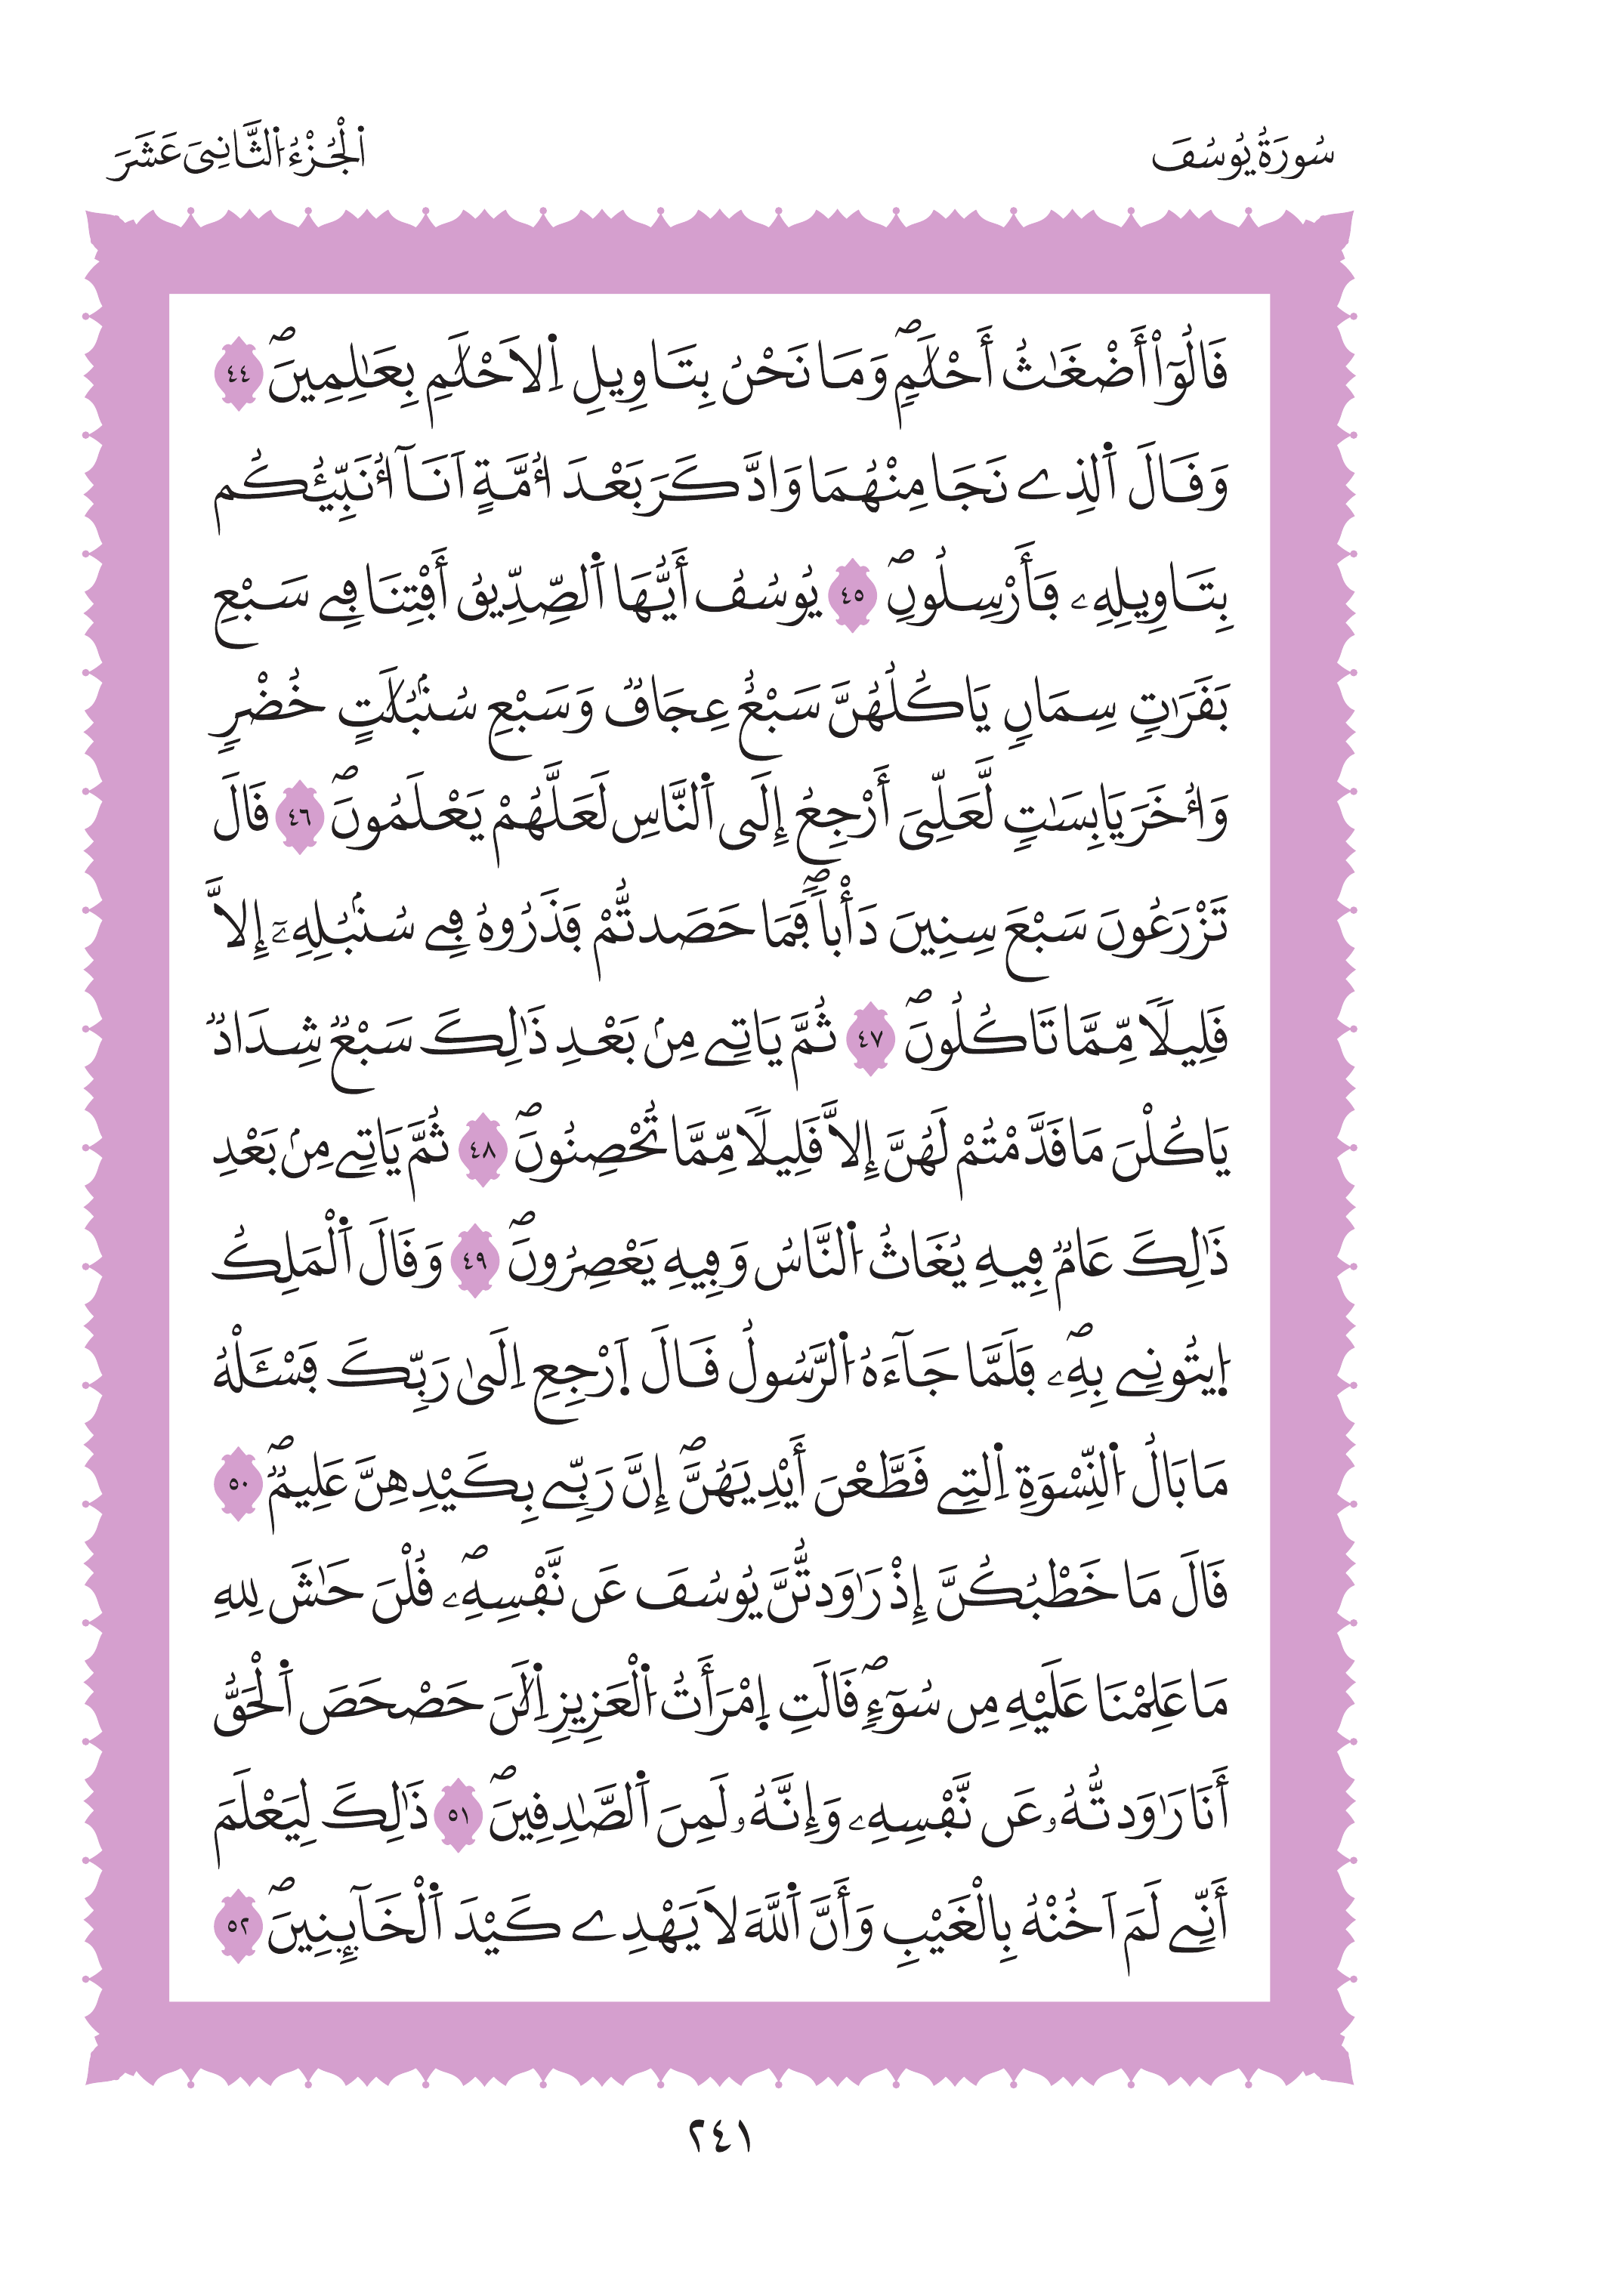 سُورَةُ يُوسُفَ
اَ۬لْجُزْءُ اُ۬لثَّانِيَ عَشَرَ
قَالُوٓاْ أَضْغَٰثُ أَحْلَٰمٖۖ وَمَا نَحْنُ بِتَاوِيلِ اِ۬لَاحْلَٰمِ بِعَٰلِمِينَۖ ٤٤
وَقَالَ اَ۬لذِے نَجَا مِنْهُمَا وَادَّكَرَ بَعْدَ أُمَّةٍ اَنَآ أُنَبِّئُكُم
بِتَاوِيلِهِۦ فَأَرْسِلُونِۖ ٤٥ يُوسُفُ أَيُّهَا اَ۬لصِّدِّيقُ أَفْتِنَا فِے سَبْعِ
بَقَرَٰتٖ سِمَانٖ يَاكُلُهُنَّ سَبْعٌ عِجَافٞ وَسَبْعِ سُنۢبُلَٰتٍ خُضْرٖ
وَأُخَرَ يَابِسَٰتٖ لَّعَلِّيَ أَرْجِعُ إِلَى اَ۬لنَّاسِ لَعَلَّهُمْ يَعْلَمُونَۖ ٤٦ قَالَ
تَزْرَعُونَ سَبْعَ سِنِينَ دَأْباٗۖ فَمَا حَصَدتُّمْ فَذَرُوهُ فِے سُنۢبُلِهِۦٓ إِلَّا
قَلِيلاٗ مِّمَّا تَاكُلُونَۖ ٤٧ ثُمَّ يَاتِے مِنۢ بَعْدِ ذَٰلِكَ سَبْعٞ شِدَادٞ
يَاكُلْنَ مَا قَدَّمْتُمْ لَهُنَّ إِلَّا قَلِيلاٗ مِّمَّا تُحْصِنُونَۖ ٤٨ ثُمَّ يَاتِے مِنۢ بَعْدِ
ذَٰلِكَ عَامٞ فِيهِ يُغَاثُ اُ۬لنَّاسُ وَفِيهِ يَعْصِرُونَۖ ٤٩ وَقَالَ اَ۬لْمَلِكُ
اُ۪يتُونِے بِهِۦۖ فَلَمَّا جَآءَهُ اُ۬لرَّسُولُ قَالَ اَ۪رْجِعِ اِلَىٰ رَبِّكَ فَسْـَٔلْهُ
مَا بَالُ اُ۬لنِّسْوَةِ اِ۬لتِے قَطَّعْنَ أَيْدِيَهُنَّۖ إِنَّ رَبِّے بِكَيْدِهِنَّ عَلِيمٞۖ ٥٠
قَالَ مَا خَطْبُكُنَّ إِذْ رَٰوَدتُّنَّ يُوسُفَ عَن نَّفْسِهِۦۖ قُلْنَ حَٰشَ لِلهِ
مَا عَلِمْنَا عَلَيْهِ مِن سُوٓءٖۖ قَالَتِ اِ۪مْرَأَتُ اُ۬لْعَزِيزِ اِ۬لَٰنَ حَصْحَصَ اَ۬لْحَقُّ
أَنَا رَٰوَدتُّهُۥ عَن نَّفْسِهِۦ وَإِنَّهُۥ لَمِنَ اَ۬لصَّٰدِقِينَۖ ٥١ ذَٰلِكَ لِيَعْلَمَ
أَنِّے لَمَ اَخُنْهُ بِالْغَيْبِ وَأَنَّ اَ۬للَّهَ لَا يَهْدِے كَيْدَ اَ۬لْخَآئِنِينَۖ ٥٢
٢٤١